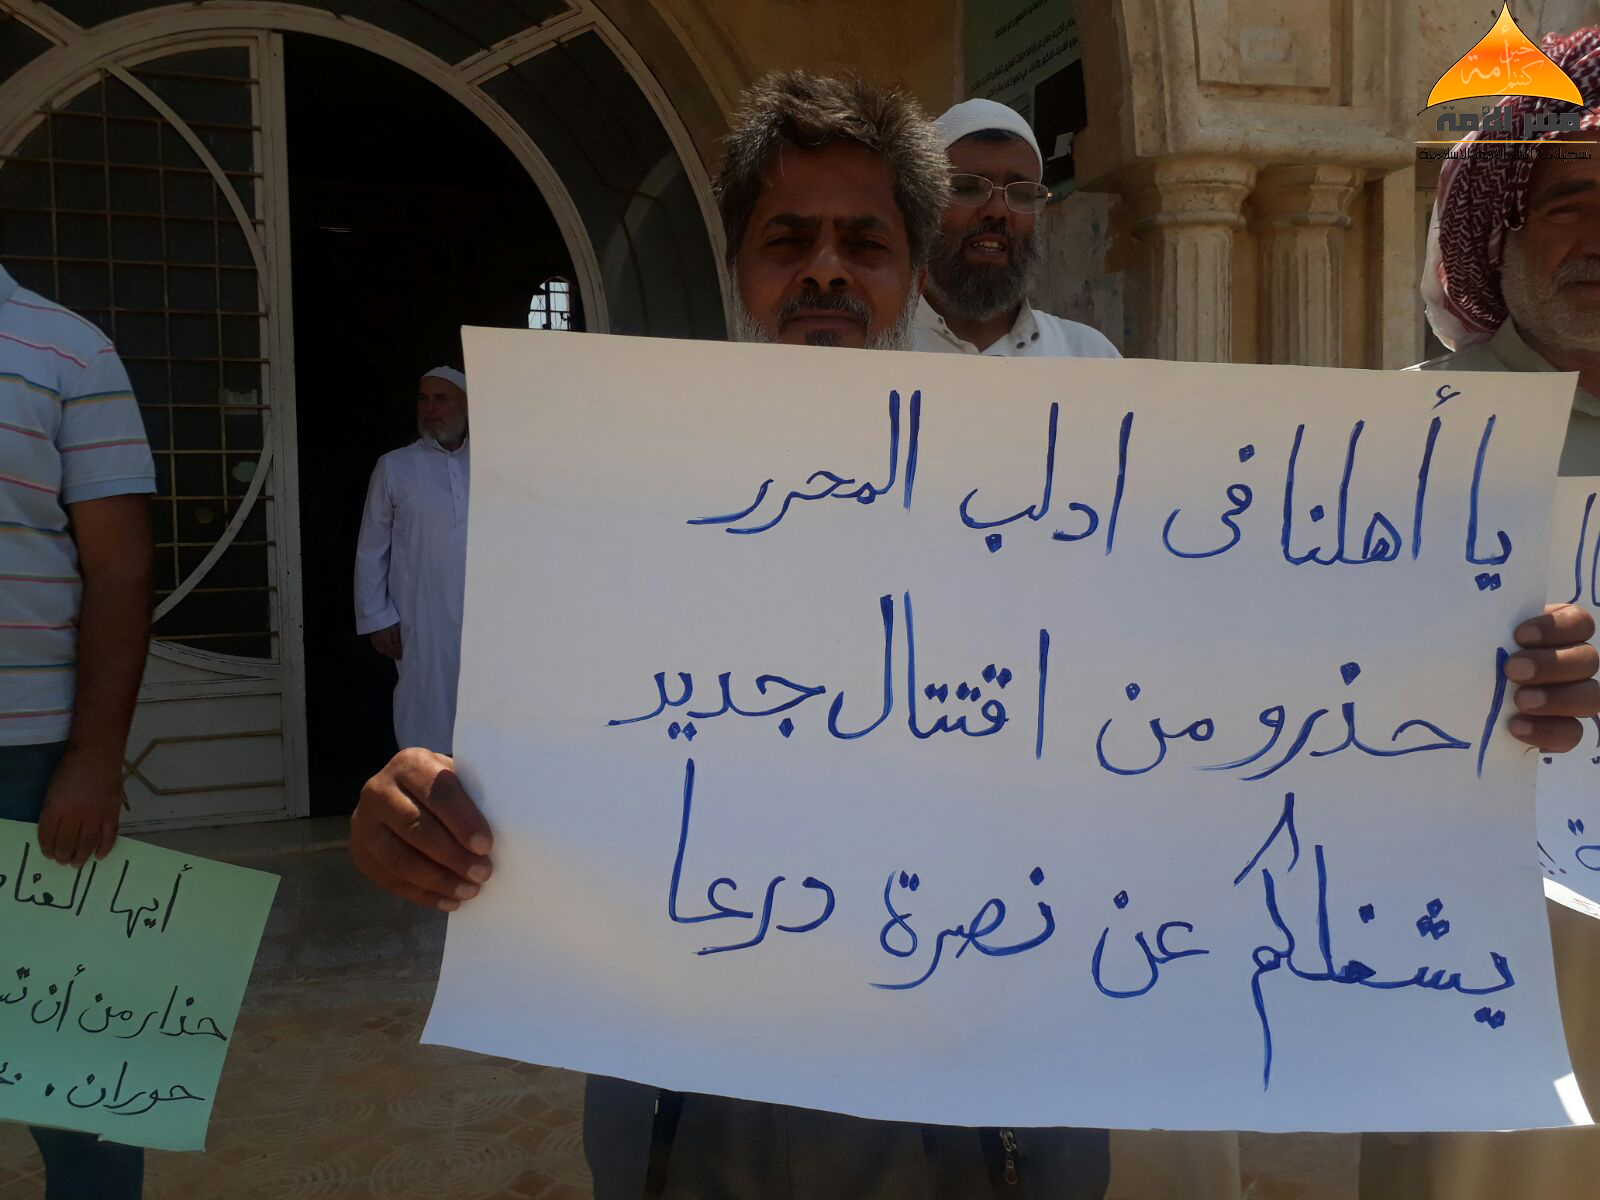 يا أهلنا في ادلب المحرر
احذرو من اقتتال جديد
يشغلكم عن نصرة درعا
أيها العنا
حذار من أن
حوران .
خير أمة
منبر الأمة